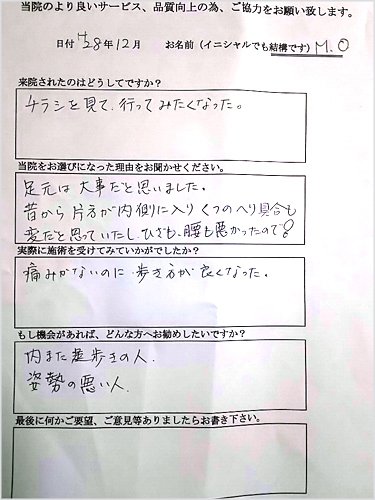 当院のより良いサービス、品質向上の為、ご協力をお願い致します。
日付 H28年12月 お名前(イニシャルでも結構です) M.O
来院されたのはどうしてですか?
チラシを見て、行ってみたくなった。
当院をお選びになった理由をお聞かせください。
足元は大事だと思いました。
昔から片方が内側に入りくつのへり具合も
変だと思っていたし、ひざも、腰も悪かったので。
実際に施術を受けてみていかがでしたか?
痛みがないのに歩き方が良くなった。
もし機会があれば、どんな方へお勧めしたいですか?
内また歩きの人、
姿勢の悪い人、
最後に何かご要望、ご意見等ありましたらお書き下さい。